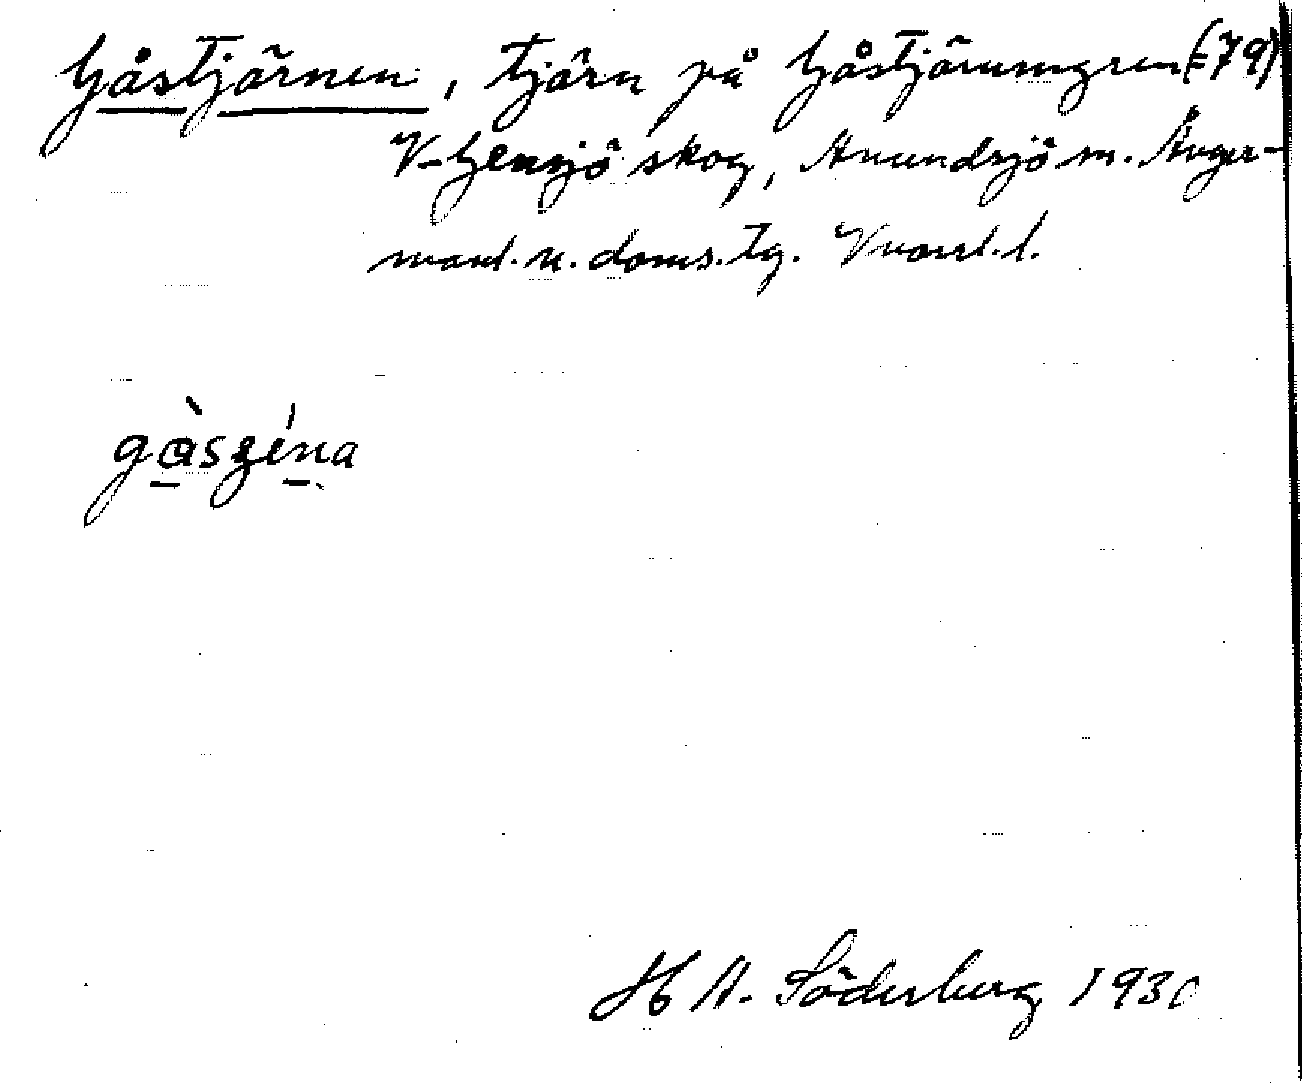 Gåstjärnen, tjärn på Gåstjärnmyren (=79)
V-Gensjö skog, Anundsjö sn. Ånger-
manl. n. doms. tg. Vnorrl. l.
gàsʒéna
H A. Söderberg 1930